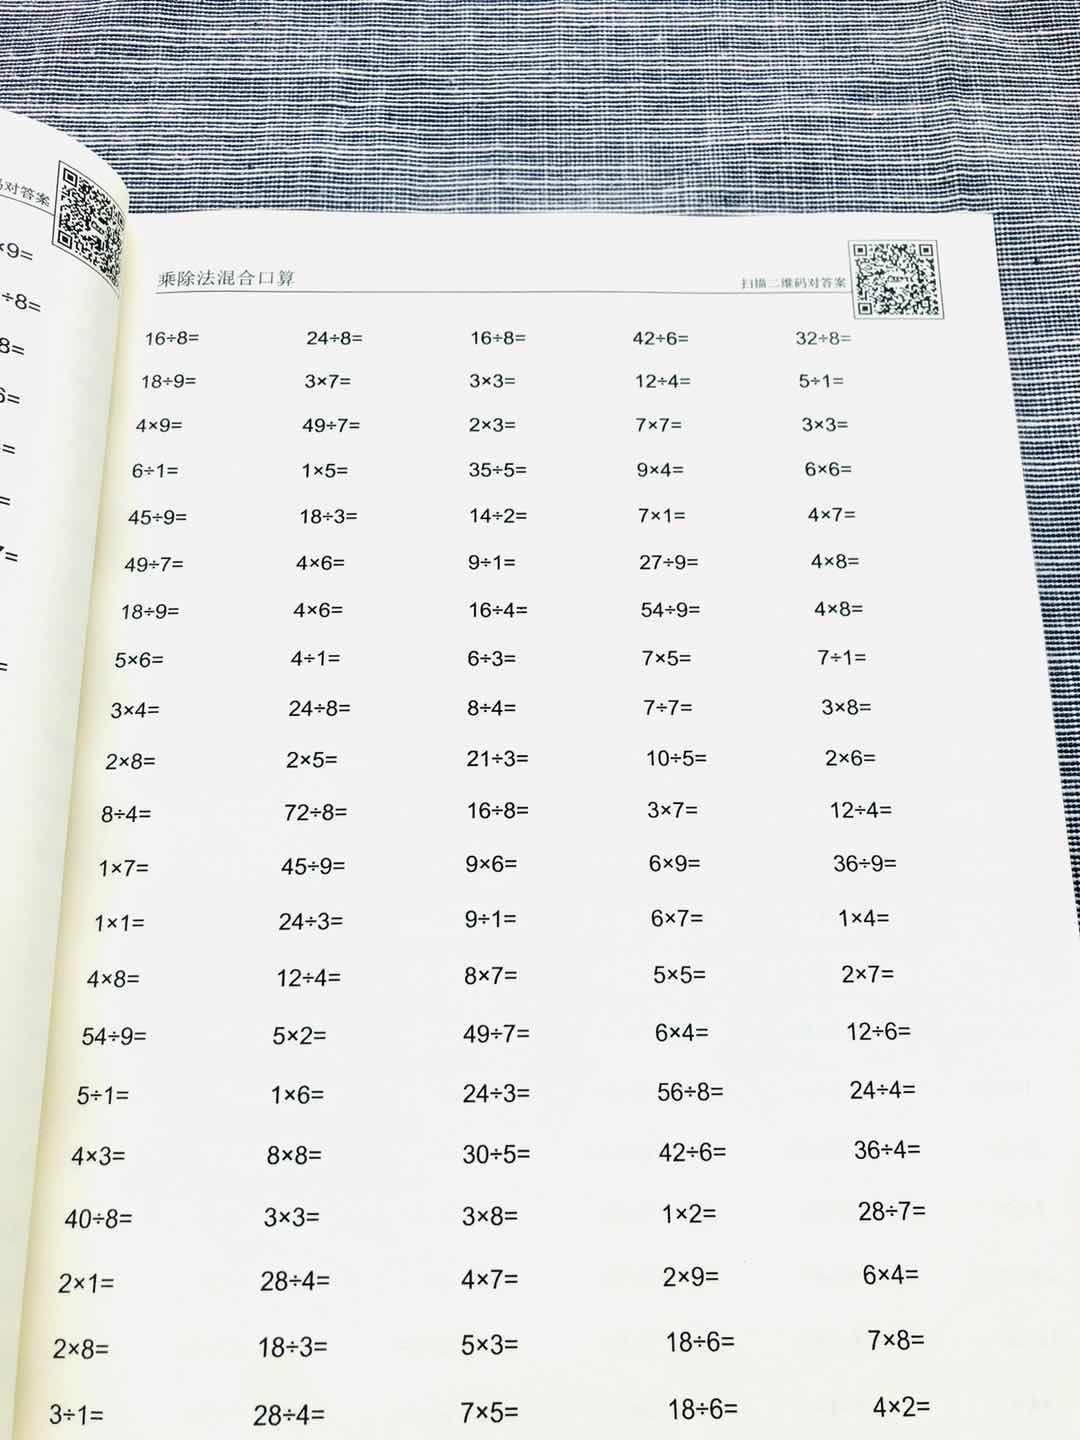 码对答案
×9=
÷8=
8=
6=
=
=
7=
=
乘除法混合口算
扫描二维码对答案
16÷8= 24÷8= 16÷8= 42÷6= 32÷8=
18÷9= 3×7= 3×3= 12÷4= 5÷1=
4×9= 49÷7= 2×3= 7×7= 3×3=
6÷1= 1×5= 35÷5= 9×4= 6×6=
45÷9= 18÷3= 14÷2= 7×1= 4×7=
49÷7= 4×6= 9÷1= 27÷9= 4×8=
18÷9= 4×6= 16÷4= 54÷9= 4×8=
5×6= 4÷1= 6÷3= 7×5= 7÷1=
3×4= 24÷8= 8÷4= 7÷7= 3×8=
2×8= 2×5= 21÷3= 10÷5= 2×6=
8÷4= 72÷8= 16÷8= 3×7= 12÷4=
1×7= 45÷9= 9×6= 6×9= 36÷9=
1×1= 24÷3= 9÷1= 6×7= 1×4=
4×8= 12÷4= 8×7= 5×5= 2×7=
54÷9= 5×2= 49÷7= 6×4= 12÷6=
5÷1= 1×6= 24÷3= 56÷8= 24÷4=
4×3= 8×8= 30÷5= 42÷6= 36÷4=
40÷8= 3×3= 3×8= 1×2= 28÷7=
2×1= 28÷4= 4×7= 2×9= 6×4=
2×8= 18÷3= 5×3= 18÷6= 7×8=
3÷1= 28÷4= 7×5= 18÷6= 4×2=